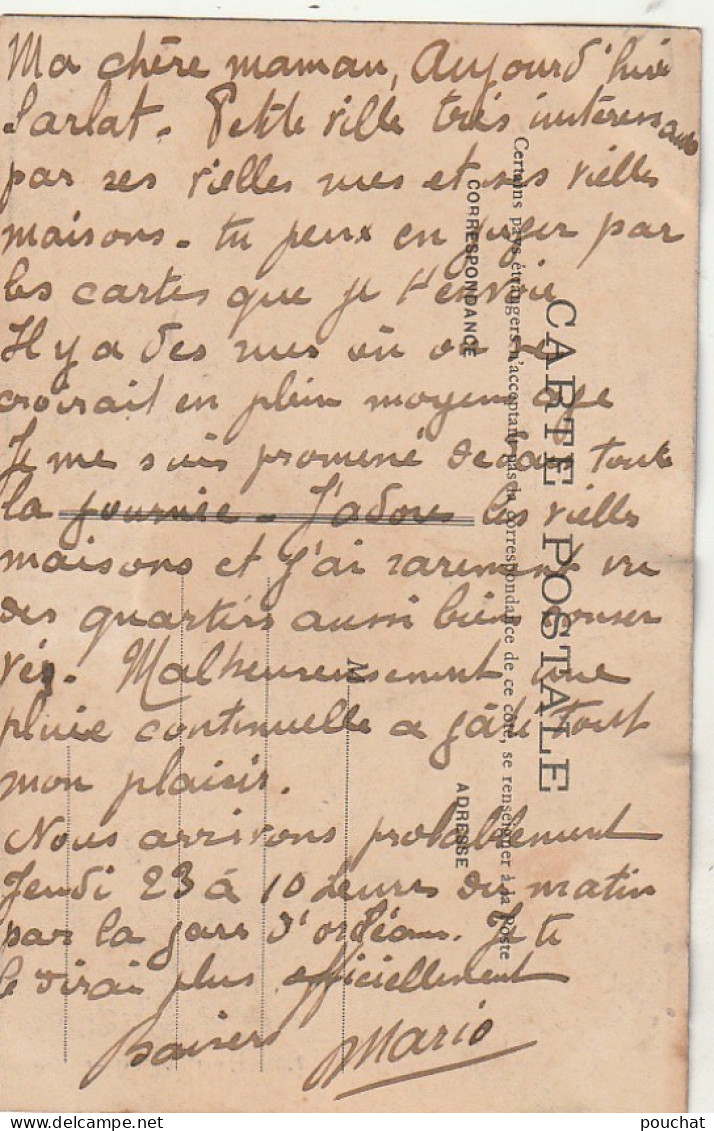 Ma chère maman, Aujourd'hui
Sarlat. Petite ville très intéressante
par ses vielles rues et ses vielles
maisons. tu peux en juger par
les cartes que je t'envoie
Il y a des rues où on se
croirait en plein moyen age
Je me suis promené dedans toute
la journée. J'adore les vielles
maisons et j'ai rarement vu
des quartiers aussi bien conser
vés. Malheureusement une
pluie continuelle a gâté tout
mon plaisir.
Nous arrivons probablement
Jeudi 23 à 10 heures du matin
par la gare d'orléans. Je te
le dirai plus officiellement
baisers Mario
CARTE POSTALE
Certains pays étrangers n'acceptant pas la correspondance de ce côté, se renseigner à la Poste
CORRESPONDANCE
ADRESSE
M
pouchat